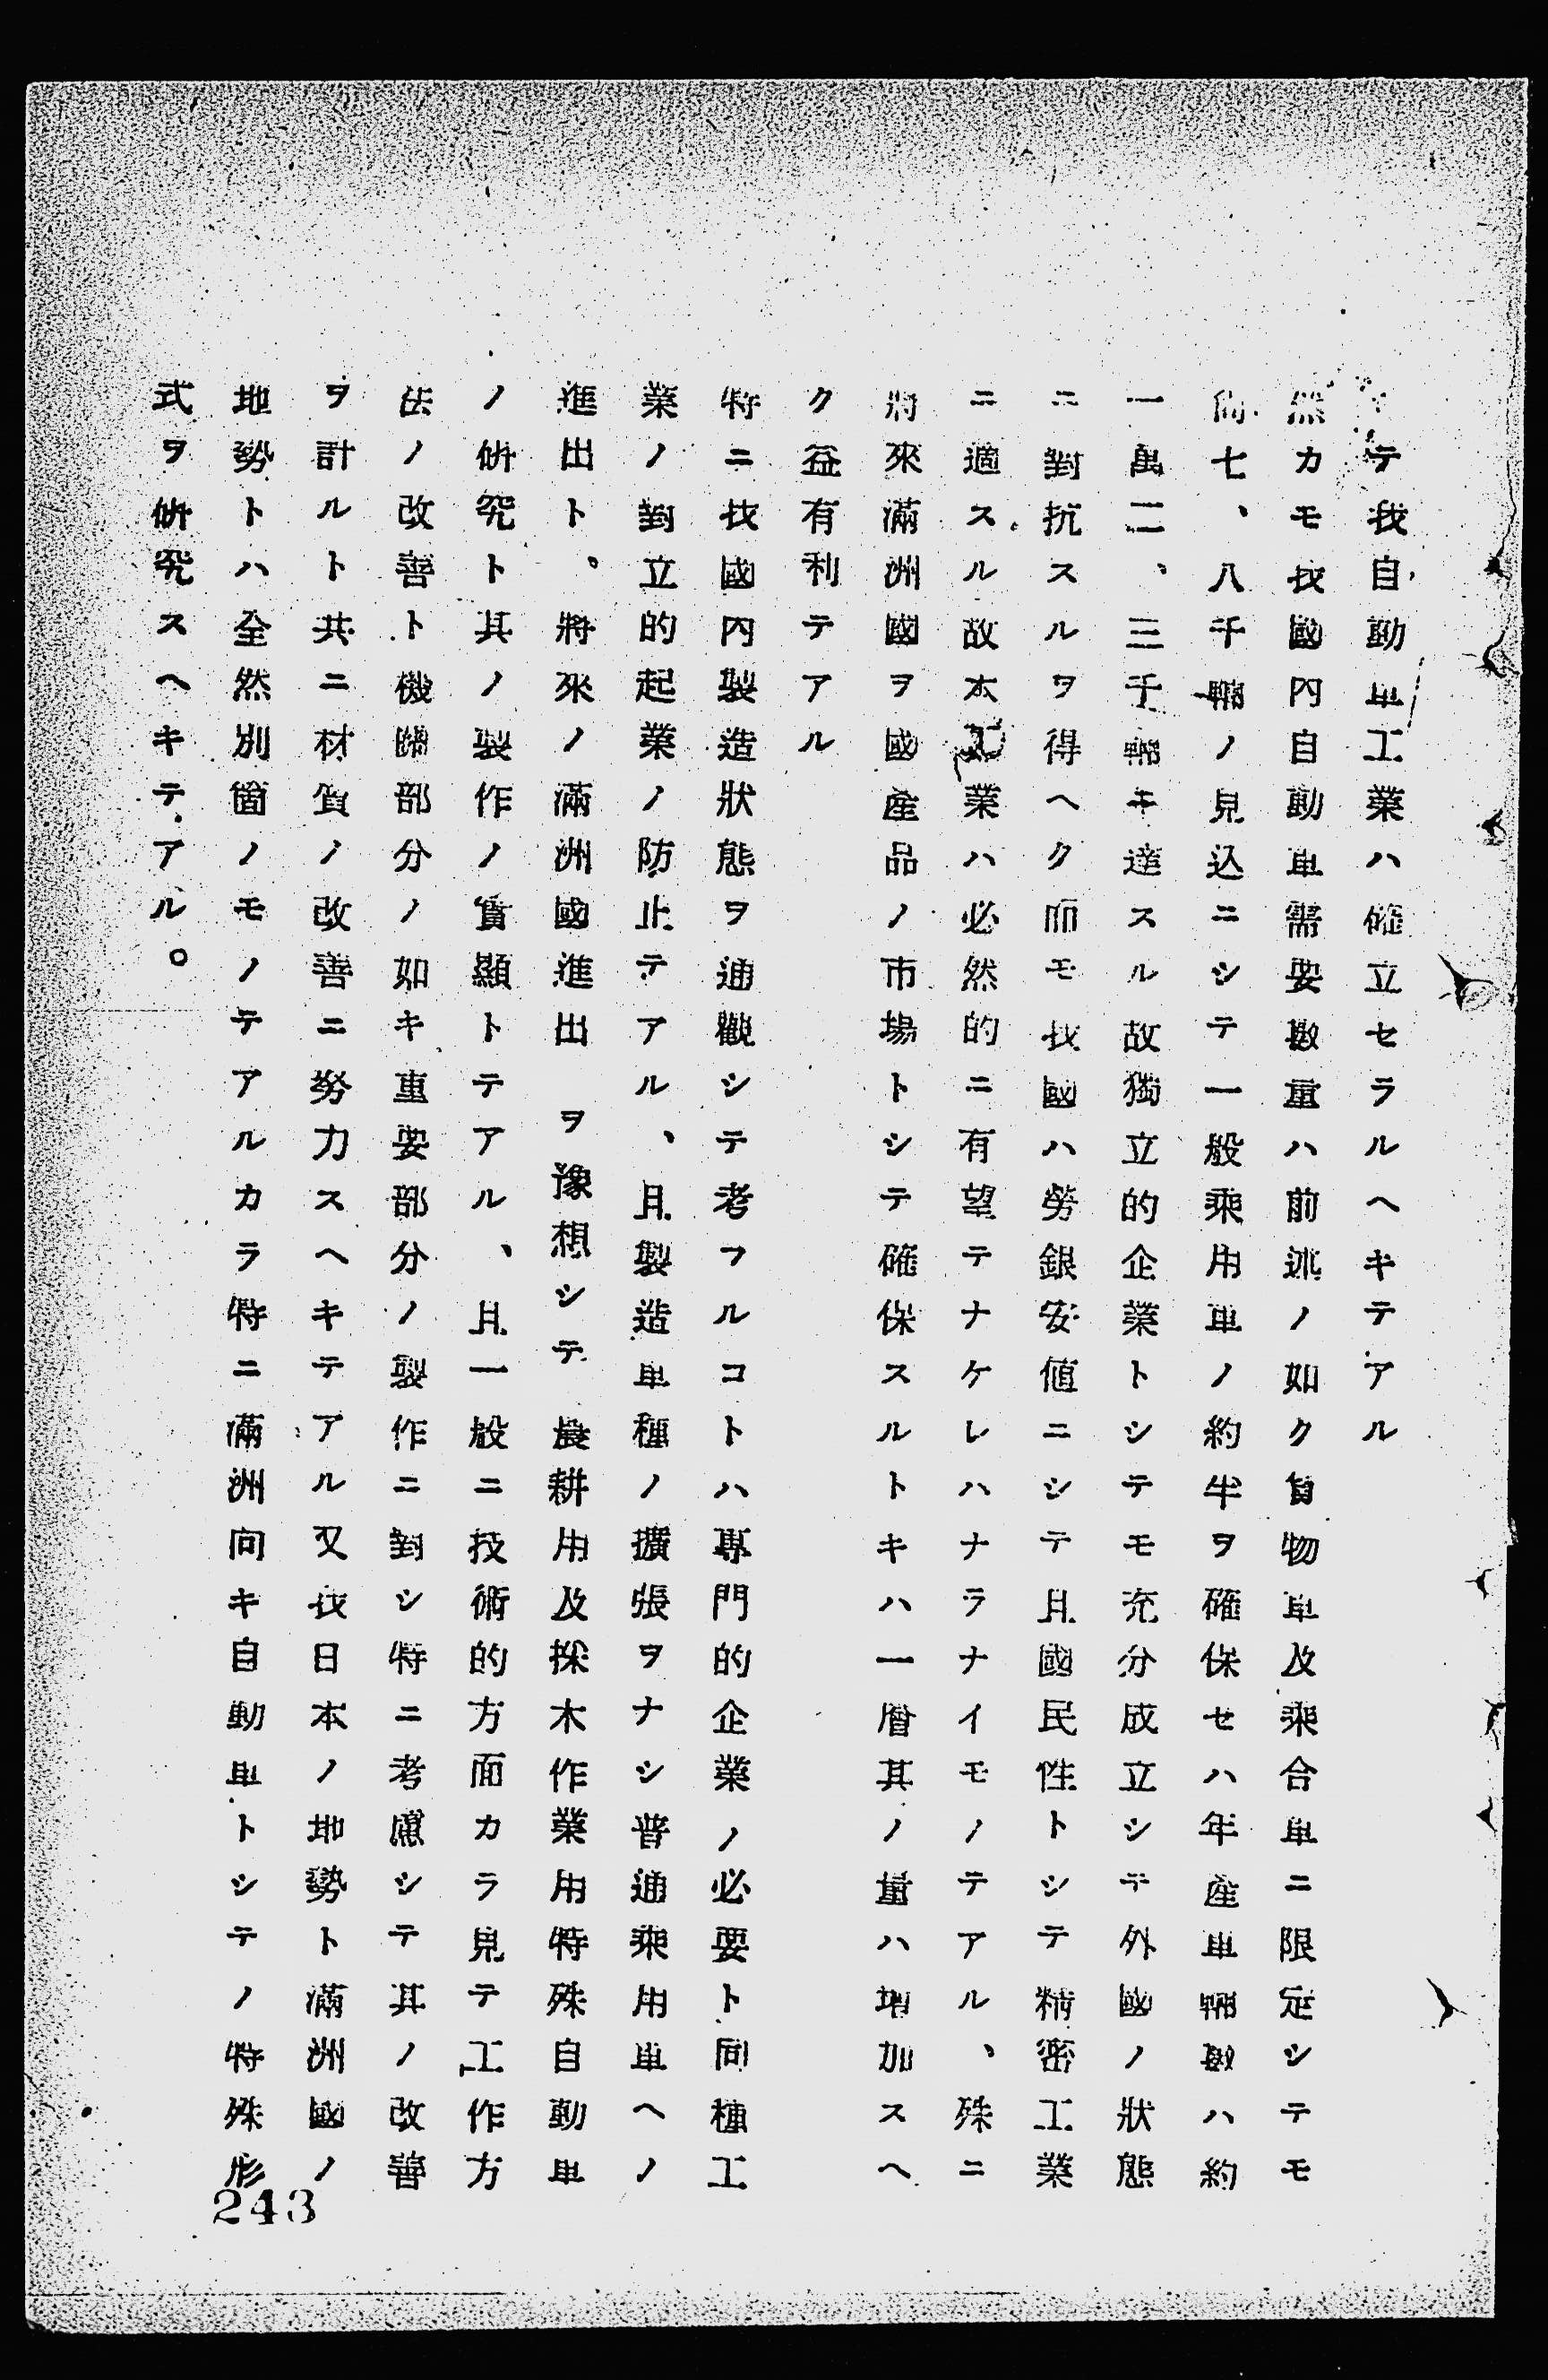 テ我自動車工業ハ確立セラルヘキテアル
然カモ我國內自動車需要數量ハ前述ノ如ク貨物車及乘合車ニ限定シテモ
尙七、八千輛ノ見込ニシテ一般乘用車ノ約半ヲ確保セハ年產車輛數ハ約
一萬二、三千輛モ達スル故獨立的企業トシテモ充分成立シテ外國ノ狀態
ニ對抗スルヲ得ヘク而モ我國ハ勞銀安値ニシテ且國民性トシテ精密工業
ニ適スル故本工業ハ必然的ニ有望テナケレハナラナイモノテアル、殊ニ
將來滿洲國ヲ國產品ノ市場トシテ確保スルトキハ一層其ノ量ハ增加スヘ
ク益有利テアル
特ニ我國內製造狀態ヲ通觀シテ考フルコトハ專門的企業ノ必要ト同種工
業ノ對立的起業ノ防止テアル、且製造車種ノ擴張ヲナシ普通乘用車ヘノ
進出ト、將來ノ滿洲國進出ヲ豫想シテ農耕用及採木作業用特殊自動車
ノ硏究ト其ノ製作ノ實顯トテアル、且一般ニ技術的方面カラ見テ工作方
法ノ改善ト機關部分ノ如キ重要部分ノ製作ニ對シ特ニ考慮シテ其ノ改善
ヲ計ルト共ニ材質ノ改善ニ努力スヘキテアル又我日本ノ地勢ト滿洲國ノ
地勢トハ全然別箇ノモノテアルカラ特ニ滿洲向キ自動車トシテノ特殊形
式ヲ硏究スヘキテアル。
243